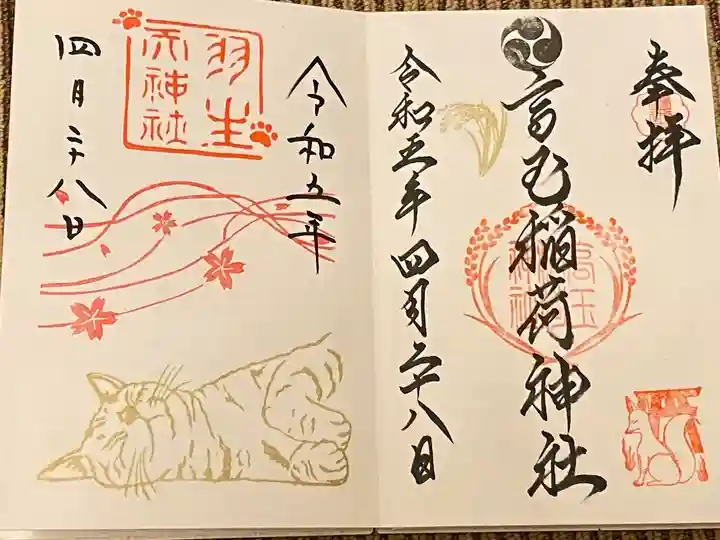 奉拝
高玉稲荷神社
令和五年四月二十八日
令和五年
羽生
天神社
四月二十八日